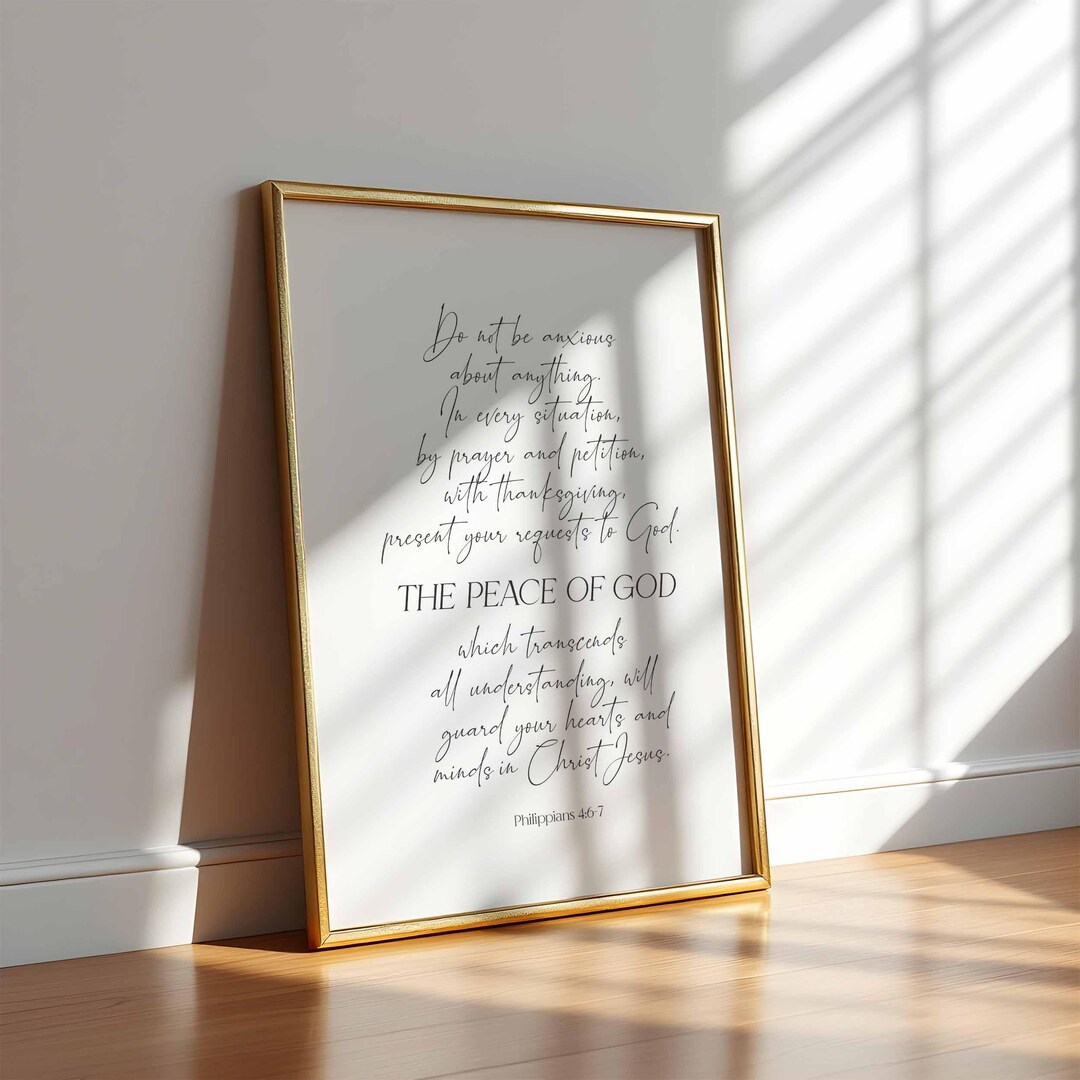 Do not be anxious
about anything.
In every situation,
by prayer and petition,
with thanksgiving,
present your requests to God.
THE PEACE OF GOD
which transcends
all understanding, will
guard your hearts and
minds in Christ Jesus.
Philippians 4:6-7